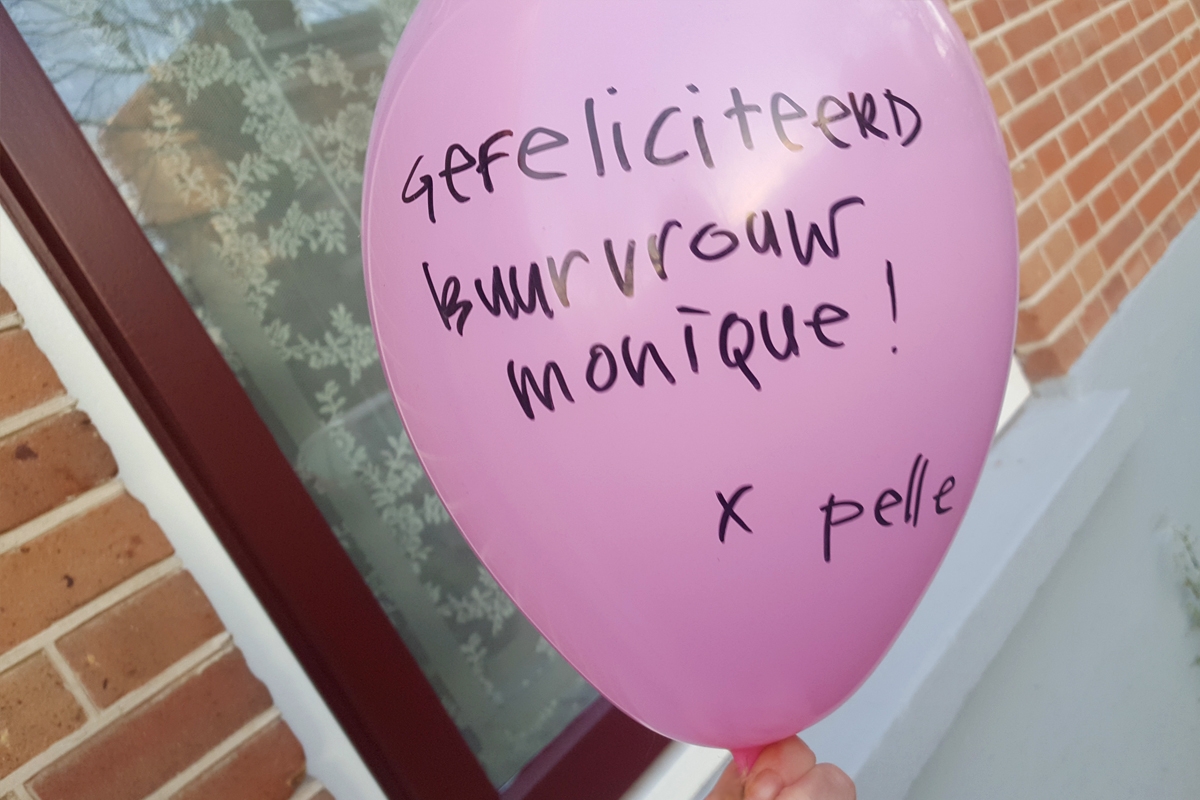 Gefeliciteerd
buurvrouw
monique!
x pelle